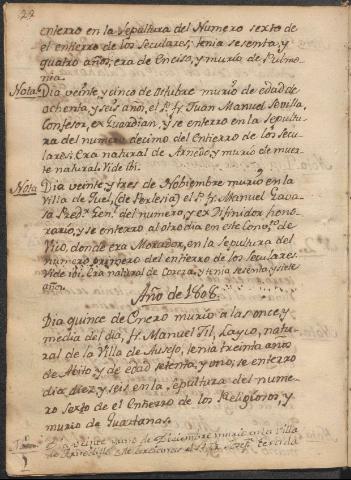 22
enterro en la Sepultura del Numero sexto de
el entierro de los Seculares; tenia sesenta, y
quatro años, era de Enciso, y murio de Pulmo-
nia.
Nota Dia veinte y cinco de Octubre murio de edad de
ochenta y seis años, el P. Fr Juan Manuel Sevilla,
Confesor, ex Guardian, y se enterro en la Sepultu-
ra del numero decimo del Entierro de los Secu-
lares. Era natural de Arnedo, y murio de muer-
te natural. Vide ibi.
Nota Dia veinte y tres de Nobiembre murio en la
Villa de Tuel, (de Perlesia) el P. Fr Manuel
Pred.r Gen.l del numero, y ex Difinidor hono-
rario, y se enterro al otro dia en este Conv.to de
Vico, donde era Morador, en la sepultura del
numero primero del entierro de los Seculares.
Vide ibi. Era natural de y tenia sesenta, y siete
años.
Año de 1808.
Dia quince de Enero murio a las once y
media del dia, Fr Manuel Gil, Layco, natu-
ral de la Villa de Ausejo, tenia treinta años
de Abito, y de edad setenta, y uno; se enterro
dia diez, y seis en la Sepultura del nume-
ro Sexto de el Entierro de los Religiosos, y
murio de Quartanas.
Dia veinte y uno de Diciembre murio en la Villa
de